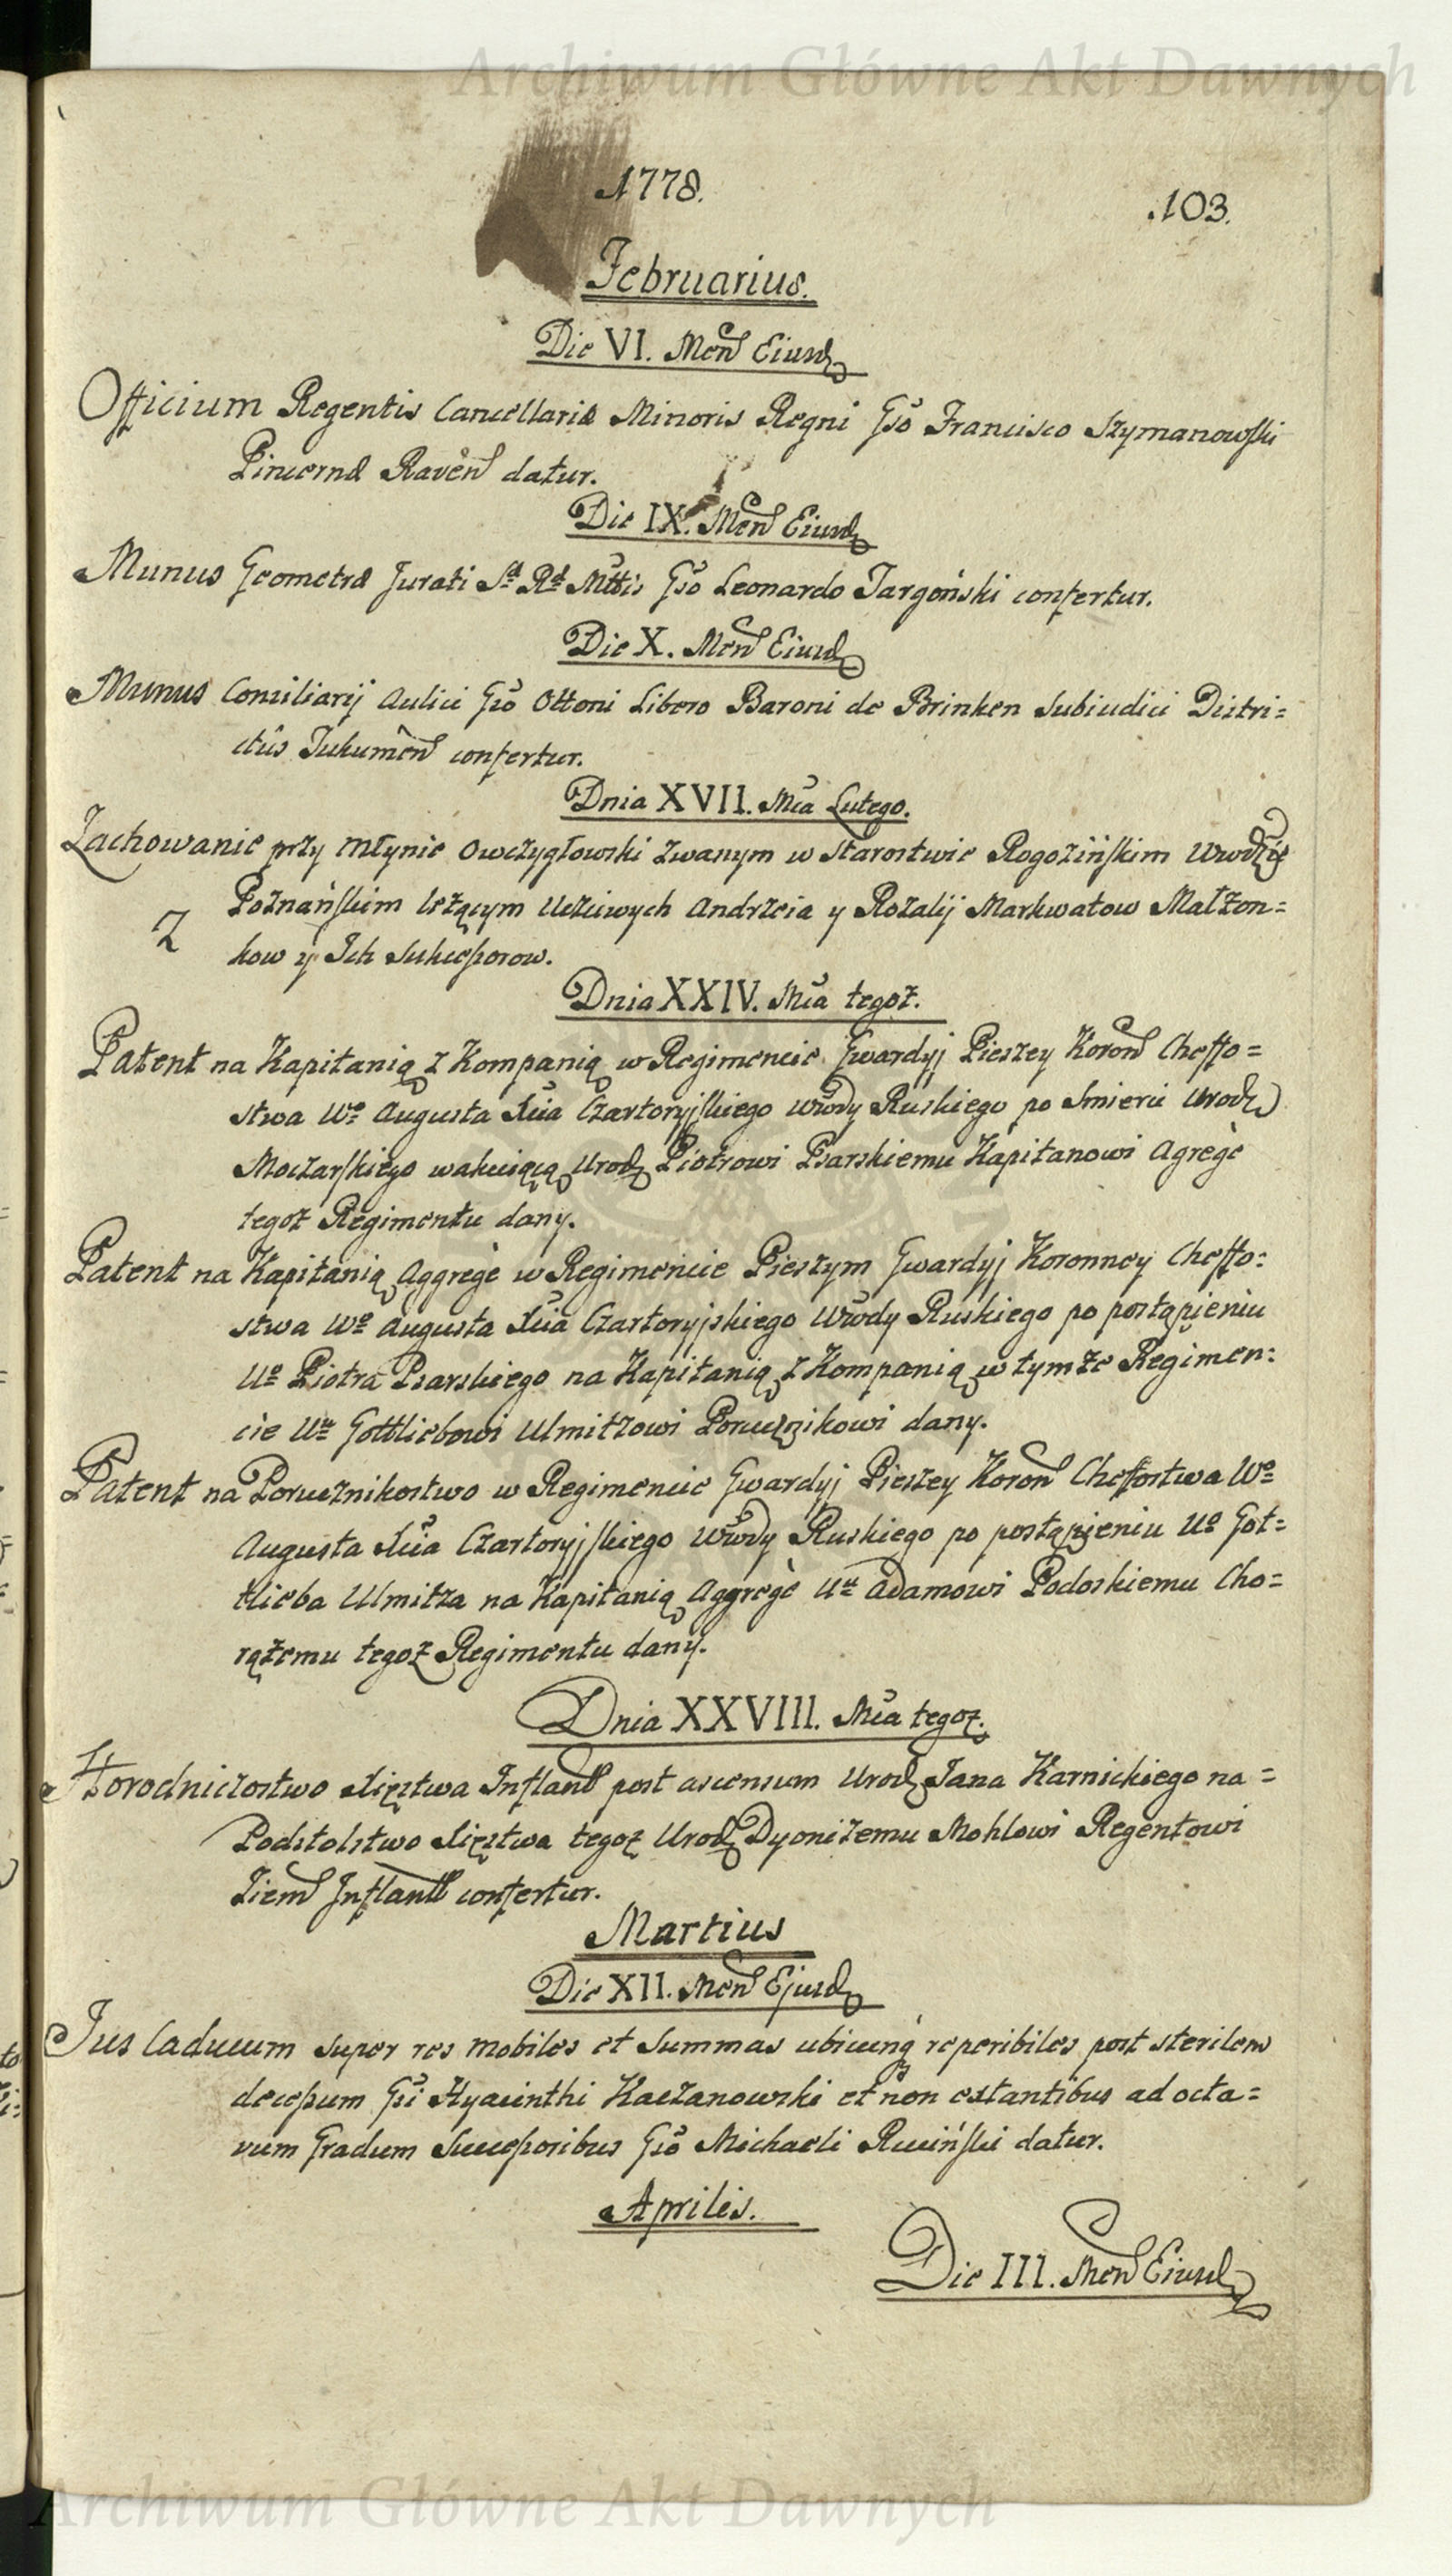 Archiwum Główne Akt Dawnych
1778.
.103.
Februarius.
Die VI. Men Eiusd
Officium Regentis Cancellariæ Minoris Regni Gso Francisco Szymanowski
Pincernæ Raven datur.
Die IX. Men Eiusd
Munus Geometræ Jurati Sæ Ræ Mttis Gso Leonardo Targoński confertur.
Die X. Men Eiusd
Munus Consiliarij Aulici Gso Ottoni Libero Baroni de Brinken Subiudici Distri=
ctûs Tukumên confertur.
Dnia XVII. Mca Lutego.
Zachowanie przy Młynie Owczygłowski zwanym w Starostwie Rogozińskim Wwdztwie
Poznańskim leżącym Uczciwych Andrzeia y Rozalij Markwatow Małżon=
Z kow y Ich Sukcessorow.
Dnia XXIV. Mca tegoż.
Patent na Kapitanią z Kompanią w Regimencie Gwardyj Pieszey Koron Cheffo=
stwa Wo Augusta Xcia Czartoryjskiego Wwdy Ruskiego po Smierci Urodz
Moczarskiego wakuiącą Urodz Piotrowi Psarskiemu Kapitanowi Agregè
tegoż Regimentu dany.
Patent na Kapitanią Aggregè w Regimencie Pieszym Gwardyj Koronney Cheffo=
stwa Wo Augusta Xcia Czartoryjskiego Wwdy Ruskiego po postąpieniu
Uo Piotra Psarskiego na Kapitanią z Kompanią w tymże Regimen=
cie Uu Gottliebowi Ulmitzowi Porucznikowi dany.
Patent na Porucznikostwo w Regimencie Gwardyj Pieszey Koron Cheffostwa Wo
Augusta Xcia Czartoryjskiego Wwdy Ruskiego po postąpieniu Uo Got=
tlieba Ulmitza na Kapitanią Aggregè Uu Adamowi Podoskiemu Cho=
rążemu tegoż Regimentu dany.
Dnia XXVIII. Mca tegoż.
Horodniczostwo Xięstwa Inflantt post ascensum Urodz Jana Karnickiego na=
Podstolstwo Xięstwa tegoż Urodz Dyonizemu Mohlowi Regentowi
Ziem Inflantt confertur.
Martius
Die XII. Men Ejusd
Jus Caducum super res mobiles et Summas ubicunq reperibiles post sterilem
decessum Gsi Hyacinthi Kaczanowski et non extantibus ad octa=
vum Gradum Successoribus Gso Michaeli Ruciński datur.
Aprilis.
Die III. Men Eiusd
Archiwum Główne Akt Dawnych